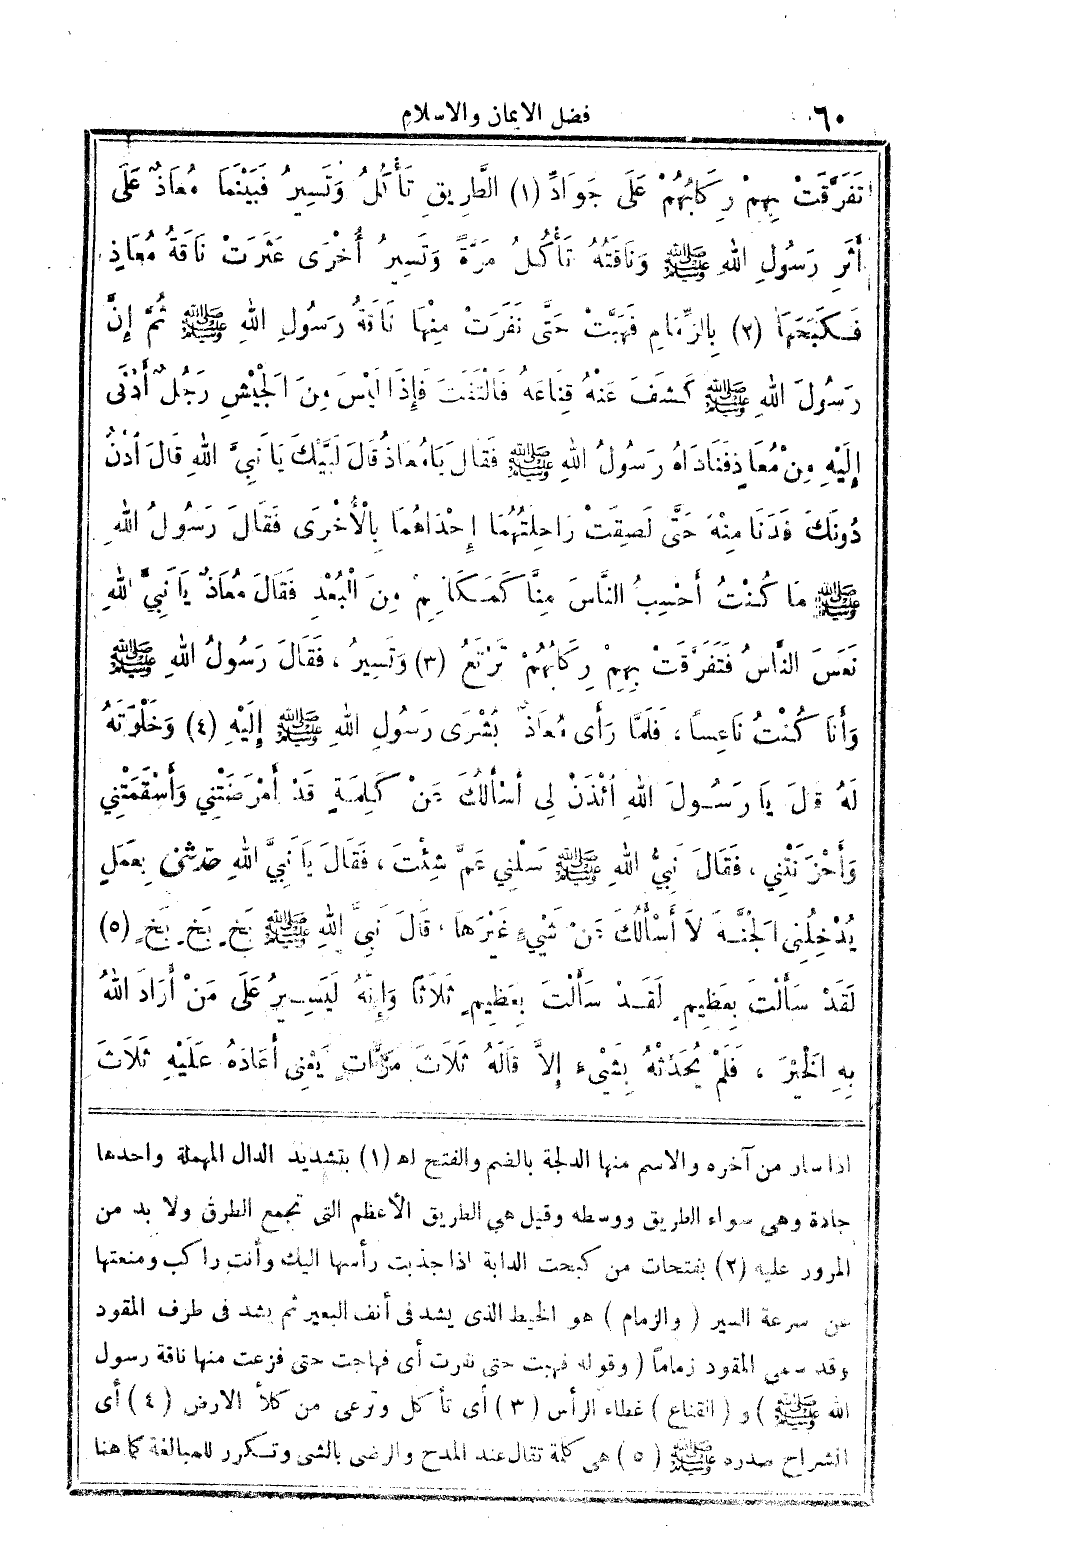 ٦٠
فضل الايمان والاسلام
تَفَرَّقَتْ بِهِمْ رِكَابُهُمْ عَلَى جَوَادِّ (١) الطَّرِيقِ تَأْكُلُ وَتَسِيرُ فَبَيْنَمَا مُعَاذٌ عَلَى
أَثَرِ رَسُولِ اللهِ ﷺ وَنَاقَتُهُ تَأْكُلُ مَرَّةً وَتَسِيرُ أُخْرَى عَثَرَتْ نَاقَةُ مُعَاذٍ
فَكَبَحَهَا (٢) بِالزِّمَامِ فَهَبَّتْ حَتَّى نَفَرَتْ مِنْهَا نَاقَةُ رَسُولِ اللهِ ﷺ ثُمَّ إِنَّ
رَسُولَ اللهِ ﷺ كَشَفَ عَنْهُ قِنَاعَهُ فَالْتَفَتَ فَإِذَا لَيْسَ مِنَ الْجَيْشِ رَجُلٌ أَدْنَى
إِلَيْهِ مِنْ مُعَاذٍ فَنَادَاهُ رَسُولُ اللهِ ﷺ فَقَالَ يَا مُعَاذُ قَالَ لَبَّيْكَ يَا نَبِيَّ اللهِ قَالَ ادْنُ
دُونَكَ فَدَنَا مِنْهُ حَتَّى لَصِقَتْ رَاحِلَتُهُمَا إِحْدَاهُمَا بِالْأُخْرَى فَقَالَ رَسُولُ اللهِ
ﷺ مَا كُنْتُ أَحْسِبُ النَّاسَ مِنَّا كَمَكَانِهِمْ مِنَ الْبُعْدِ فَقَالَ مُعَاذٌ يَا نَبِيَّ اللهِ
نَعَسَ النَّاسُ فَتَفَرَّقَتْ بِهِمْ رِكَابُهُمْ تَرْتَعُ (٣) وَتَسِيرُ ، فَقَالَ رَسُولُ اللهِ ﷺ
وَأَنَا كُنْتُ نَاعِساً ، فَلَمَّا رَأَى مُعَاذٌ بُشْرَى رَسُولِ اللهِ ﷺ إِلَيْهِ (٤) وَخَلْوَتَهُ
لَهُ قَالَ يَا رَسُولَ اللهِ ائْذَنْ لِى أَسْأَلُكَ عَنْ كَلِمَةٍ قَدْ أَمْرَضَتْنِي وَأَسْقَمَتْنِي
وَأَحْزَنَتْنِي ، فَقَالَ نَبِيُّ اللهِ ﷺ سَلْنِي عَمَّ شِئْتَ ، فَقَالَ يَا نَبِيَّ اللهِ حَدِّثْنِي بِعَمَلٍ
يُدْخِلُنِى الْجَنَّةَ لَا أَسْأَلُكَ عَنْ شَيْءٍ غَيْرَهَا ، قَالَ نَبِيُّ اللهِ ﷺ بَخٍ بَخٍ بَخٍ (٥)
لَقَدْ سَأَلْتَ بِعَظِيمٍ لَقَدْ سَأَلْتَ بِعَظِيمٍ ثَلَاثًا وَإِنَّهُ لَيَسِيرٌ عَلَى مَنْ أَرَادَ اللهُ
بِهِ الْخَيْرَ ، فَلَمْ يُحَدِّثْهُ بِشَيْءٍ إِلَّا قَالَهُ ثَلَاثَ مَرَّاتٍ يَعْنِى أَعَادَهُ عَلَيْهِ ثَلَاثَ
اذا سار من آخره والاسم منها الدلجة بالضم والفتح اه (١) بتشديد الدال المهملة واحدها
جادة وهى سواء الطريق ووسطه وقيل هي الطريق الأعظم التى تجمع الطرق ولا بد من
المرور عليه (٢) بفتحات من كبحت الدابة اذا جذبت رأسها اليك وأنت راكب ومنعتها
عن سرعة السير ( والزمام ) هو الخيط الذى يشد فى أنف البعير ثم يشد فى طرف المقود
وقد سمى المقود زماماً ( وقوله فهبت حتى نفرت أى فهاجت حتى فزعت منها ناقة رسول
الله ﷺ ) و ( القناع ) غطاء الرأس ( ٣ ) أى تأكل وترعى من كلأ الارض ( ٤ ) أى
انشراح صدره ﷺ ( ٥ ) هى كلمة تقال عند المدح والرضى بالشى وتكرر للمبالغة كما هنا